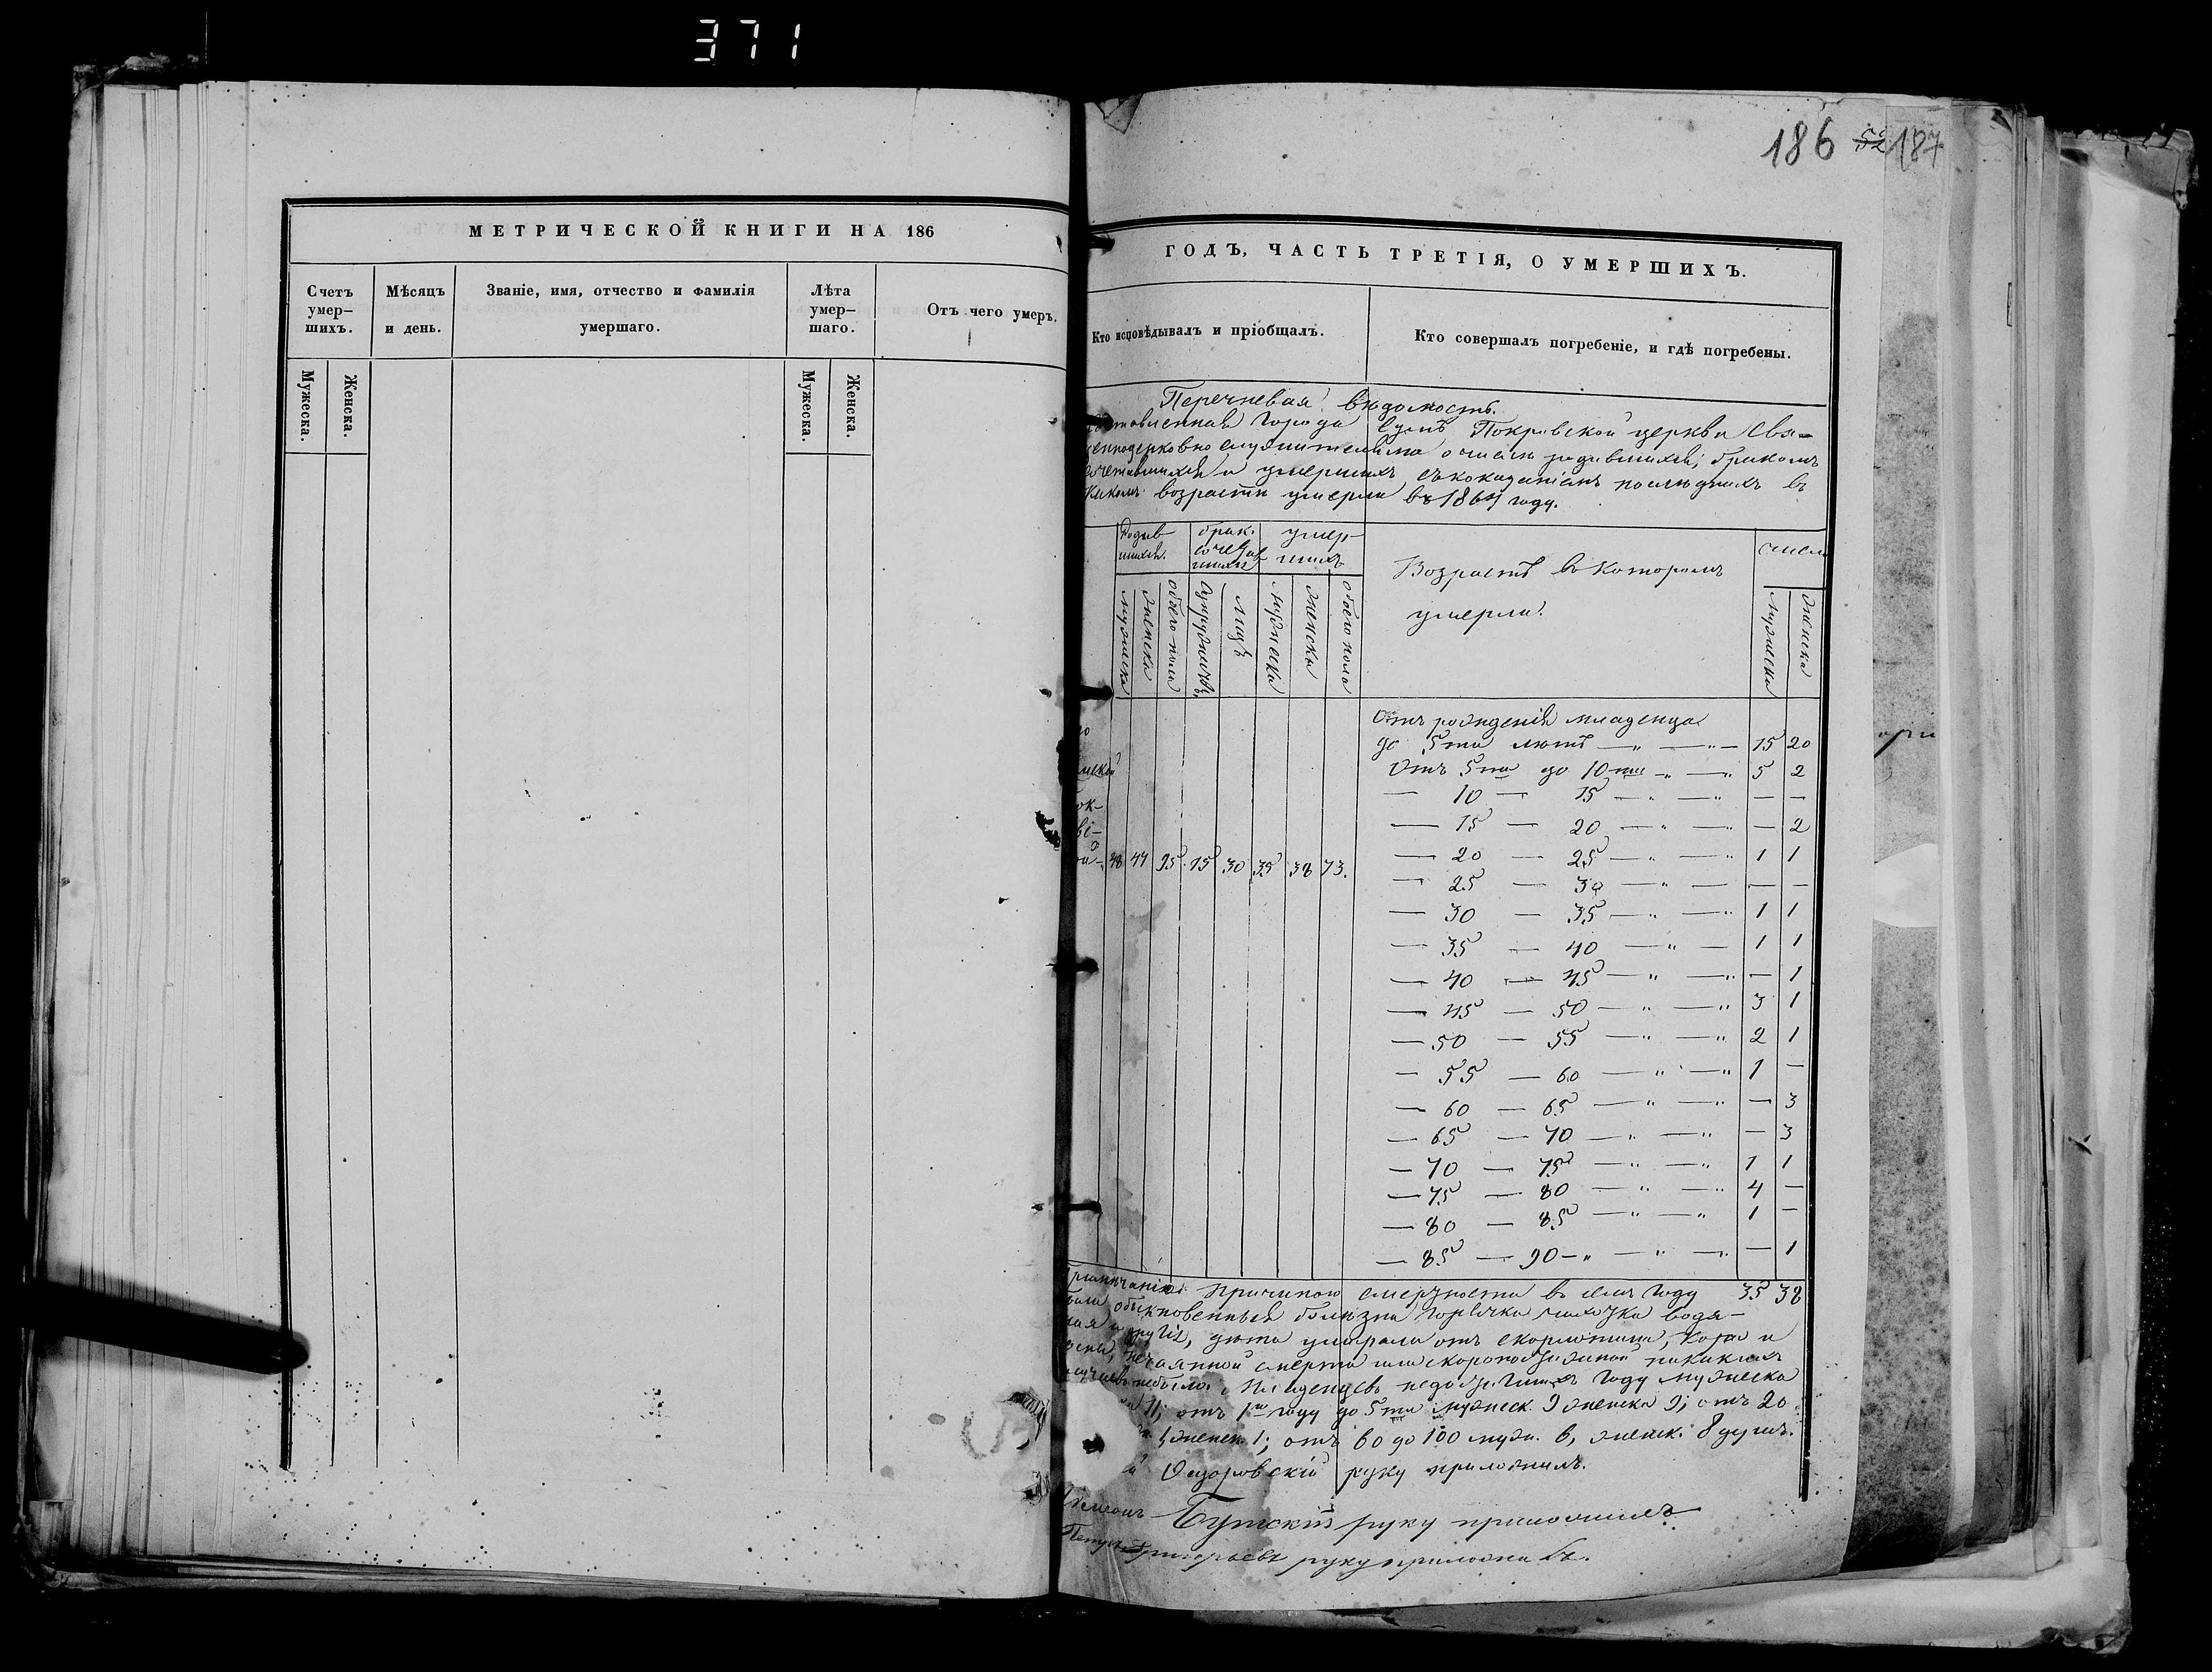 371
186 52 187
МЕТРИЧЕСКОЙ КНИГИ НА 186
Счетъ умер-шихъ.
Мѣсяцъ и день.
Званіе, имя, отчество и фамилія умершаго.
Лѣта умер-шаго.
Отъ чего умеръ.
Мужеска.
Женска.
Мужеска.
Женска.
ГОДЪ, ЧАСТЬ ТРЕТІЯ, О УМЕРШИХЪ.
Кто исповѣдывалъ и пріобщалъ.
Кто совершалъ погребеніе, и гдѣ погребены.
Перечневая вѣдомость.
города Сумъ Покровской церкви Свя-
о числѣ родившихся, бракомъ
и умершихъ, съ показаніемъ послѣднихъ въ
возрастѣ умерли въ 1864 году.
Родив-шихся.
брак. сочетав шихся
умер-шихъ
Возрастъ въ которомъ
умерли.
число
мужеска
женска
обоего пола
супружествъ
лицъ
мужеска
женска
обоего пола
мужеска
женска
48 47 95 15 30 35 38 73.
Отъ рожденія младенца
до 5ти лѣтъ — „ — „ — 15 20
Отъ 5ти до 10ти — „ — „ 5 2
— 10 — 15 — „ — „ — —
— 15 — 20 — „ — „ — 2
— 20 — 25 — „ — „ 1 1
— 25 — 30 — „ — — —
— 30 — 35 — „ — „ 1 1
— 35 — 40 — „ — 1 1
— 40 — 45 — „ — „ — 1
— 45 — 50 — „ — „ 3 1
— 50 — 55 — „ — „ 2 1
— 55 — 60 — „ — „ 1 —
— 60 — 65 — „ — „ — 3
— 65 — 70 — „ — „ — 3
— 70 — 75 — „ — „ 1 1
— 75 — 80 — „ — „ 4 —
— 80 — 85 — „ — „ 1 —
— 85 — 90 — „ — „ — „ — 1
35 38
Причиною смертности въ семъ году
обыкновенныя болѣзни горячка чахотка водя-
и другія, дѣти умирали отъ скарлатины, кори и
нечаянной смерти или скоропостижной никакихъ
небыло. Младенцевъ недостигшихъ году мужеска
11; отъ 1го году до 5ти мужеск. 9 женска 9; отъ 20
женск 1; отъ 60 до 100 муж. 6, женск. 8 душъ.
Федоровскій руку приложилъ.
Бутскій руку приложилъ
Григорьевъ руку приложилъ.